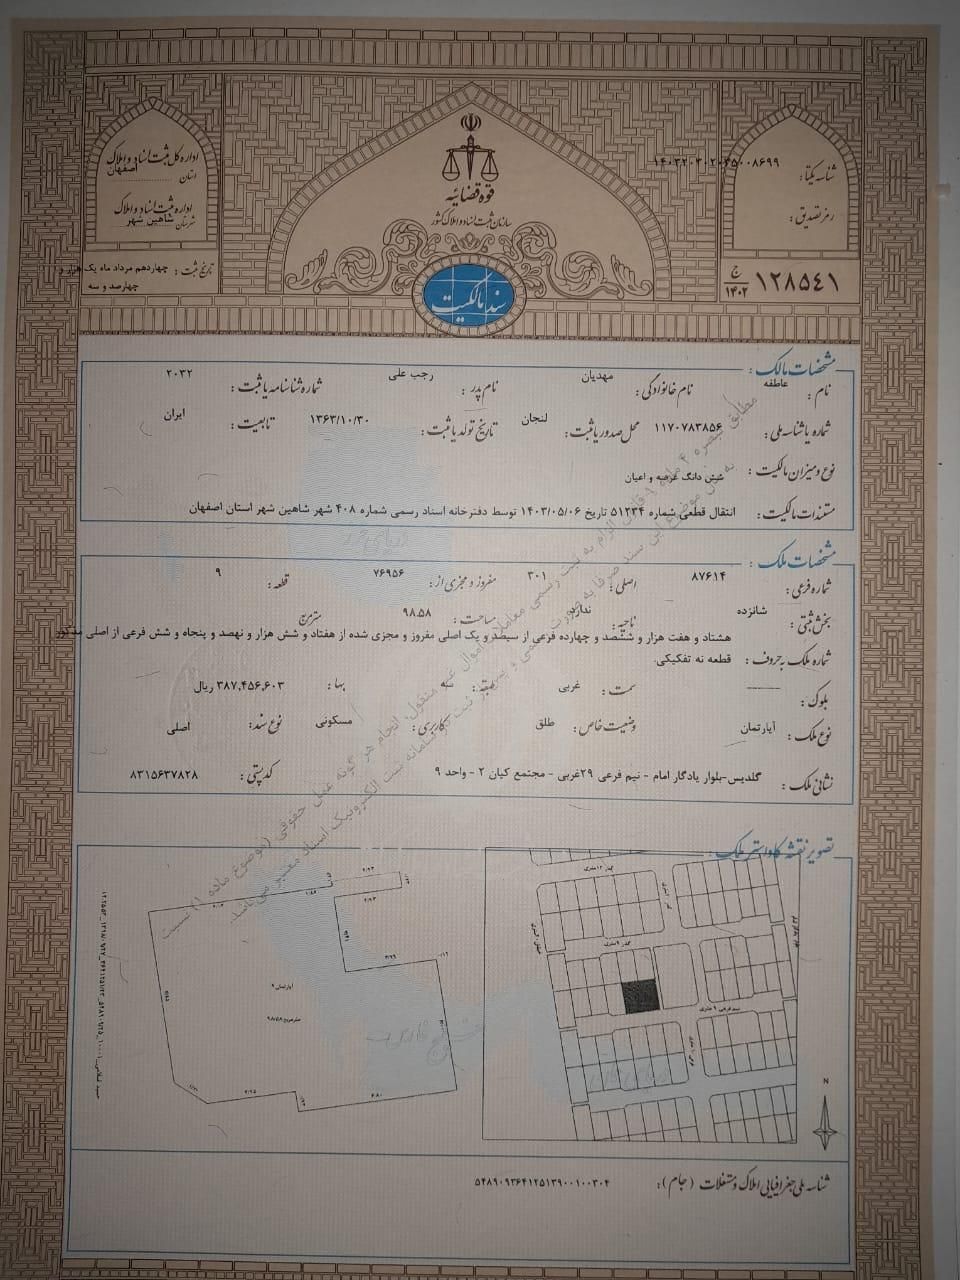 قوه قضائیه
سازمان ثبت اسناد و املاک کشور
سند مالکیت
اداره کل ثبت اسناد و املاک
استان اصفهان
اداره ثبت اسناد و املاک
شهرستان شاهین شهر
تاریخ ثبت : چهاردهم مرداد ماه یک هزار و
چهارصد و سه
شناسه یکتا:
رمز تصدیق:
۱۲۸۵۴۱ ج ۱۴۰۲
مشخصات مالک :
نام : عاطفه نام خانوادگی : مهدیان نام پدر : رجب علی شماره شناسنامه یا ثبت : ۲۰۳۲
شماره یا شناسه ملی : ۱۱۷۰۷۸۳۸۵۶ محل صدور یا ثبت : لنجان تاریخ تولد یا ثبت : ۱۳۶۳/۱۰/۳۰ تابعیت : ایران
نوع و میزان مالکیت : شش دانگ عرصه و اعیان
مستندات مالکیت : انتقال قطعی شماره ۵۱۲۳۴ تاریخ ۱۴۰۳/۰۵/۰۶ توسط دفترخانه اسناد رسمی شماره ۴۰۸ شهر شاهین شهر استان اصفهان
مشخصات ملک :
شماره فرعی : ۸۷۶۱۴ اصلی : ۳۰۱ مفروز و مجزی از : ۷۶۹۵۶ قطعه : ۹
بخش ثبتی : شانزده ناحیه : ندارد مساحت : ۹۸.۵۸ مترمربع
شماره ملک به حروف : هشتاد و هفت هزار و ششصد و چهارده فرعی از سیصد و یک اصلی مفروز و مجزی شده از هفتاد و شش هزار و نهصد و پنجاه و شش فرعی از اصلی مذکور
قطعه نه تفکیکی.
بلوک : سمت : غربی طبقه : بها : ۳۸۷,۴۵۶,۶۰۳ ریال
نوع ملک : آپارتمان وضعیت خاص : طلق کاربری : مسکونی نوع سند : اصلی
نشانی ملک : گلدیس-بلوار یادگار امام - نیم فرعی ۲۹غربی - مجتمع کیان ۲ - واحد ۹ کد پستی : ۸۳۱۵۶۳۷۸۲۸
مطابق تبصره ۴ ماده ۹ قانون الزام به ثبت رسمی معاملات اموال غیر منقول، انجام هر گونه عمل حقوقی (موضوع ماده ۱) نسبت
تصویر نقشه کاداستر ملک :
آپارتمان ۹
N
شناسه ملی جغرافیایی املاک و مستغلات (جام) : ۵۴۸۹۰۹۳۶۴۱۲۵۱۳۹۰۰۱۰۰۳۰۴